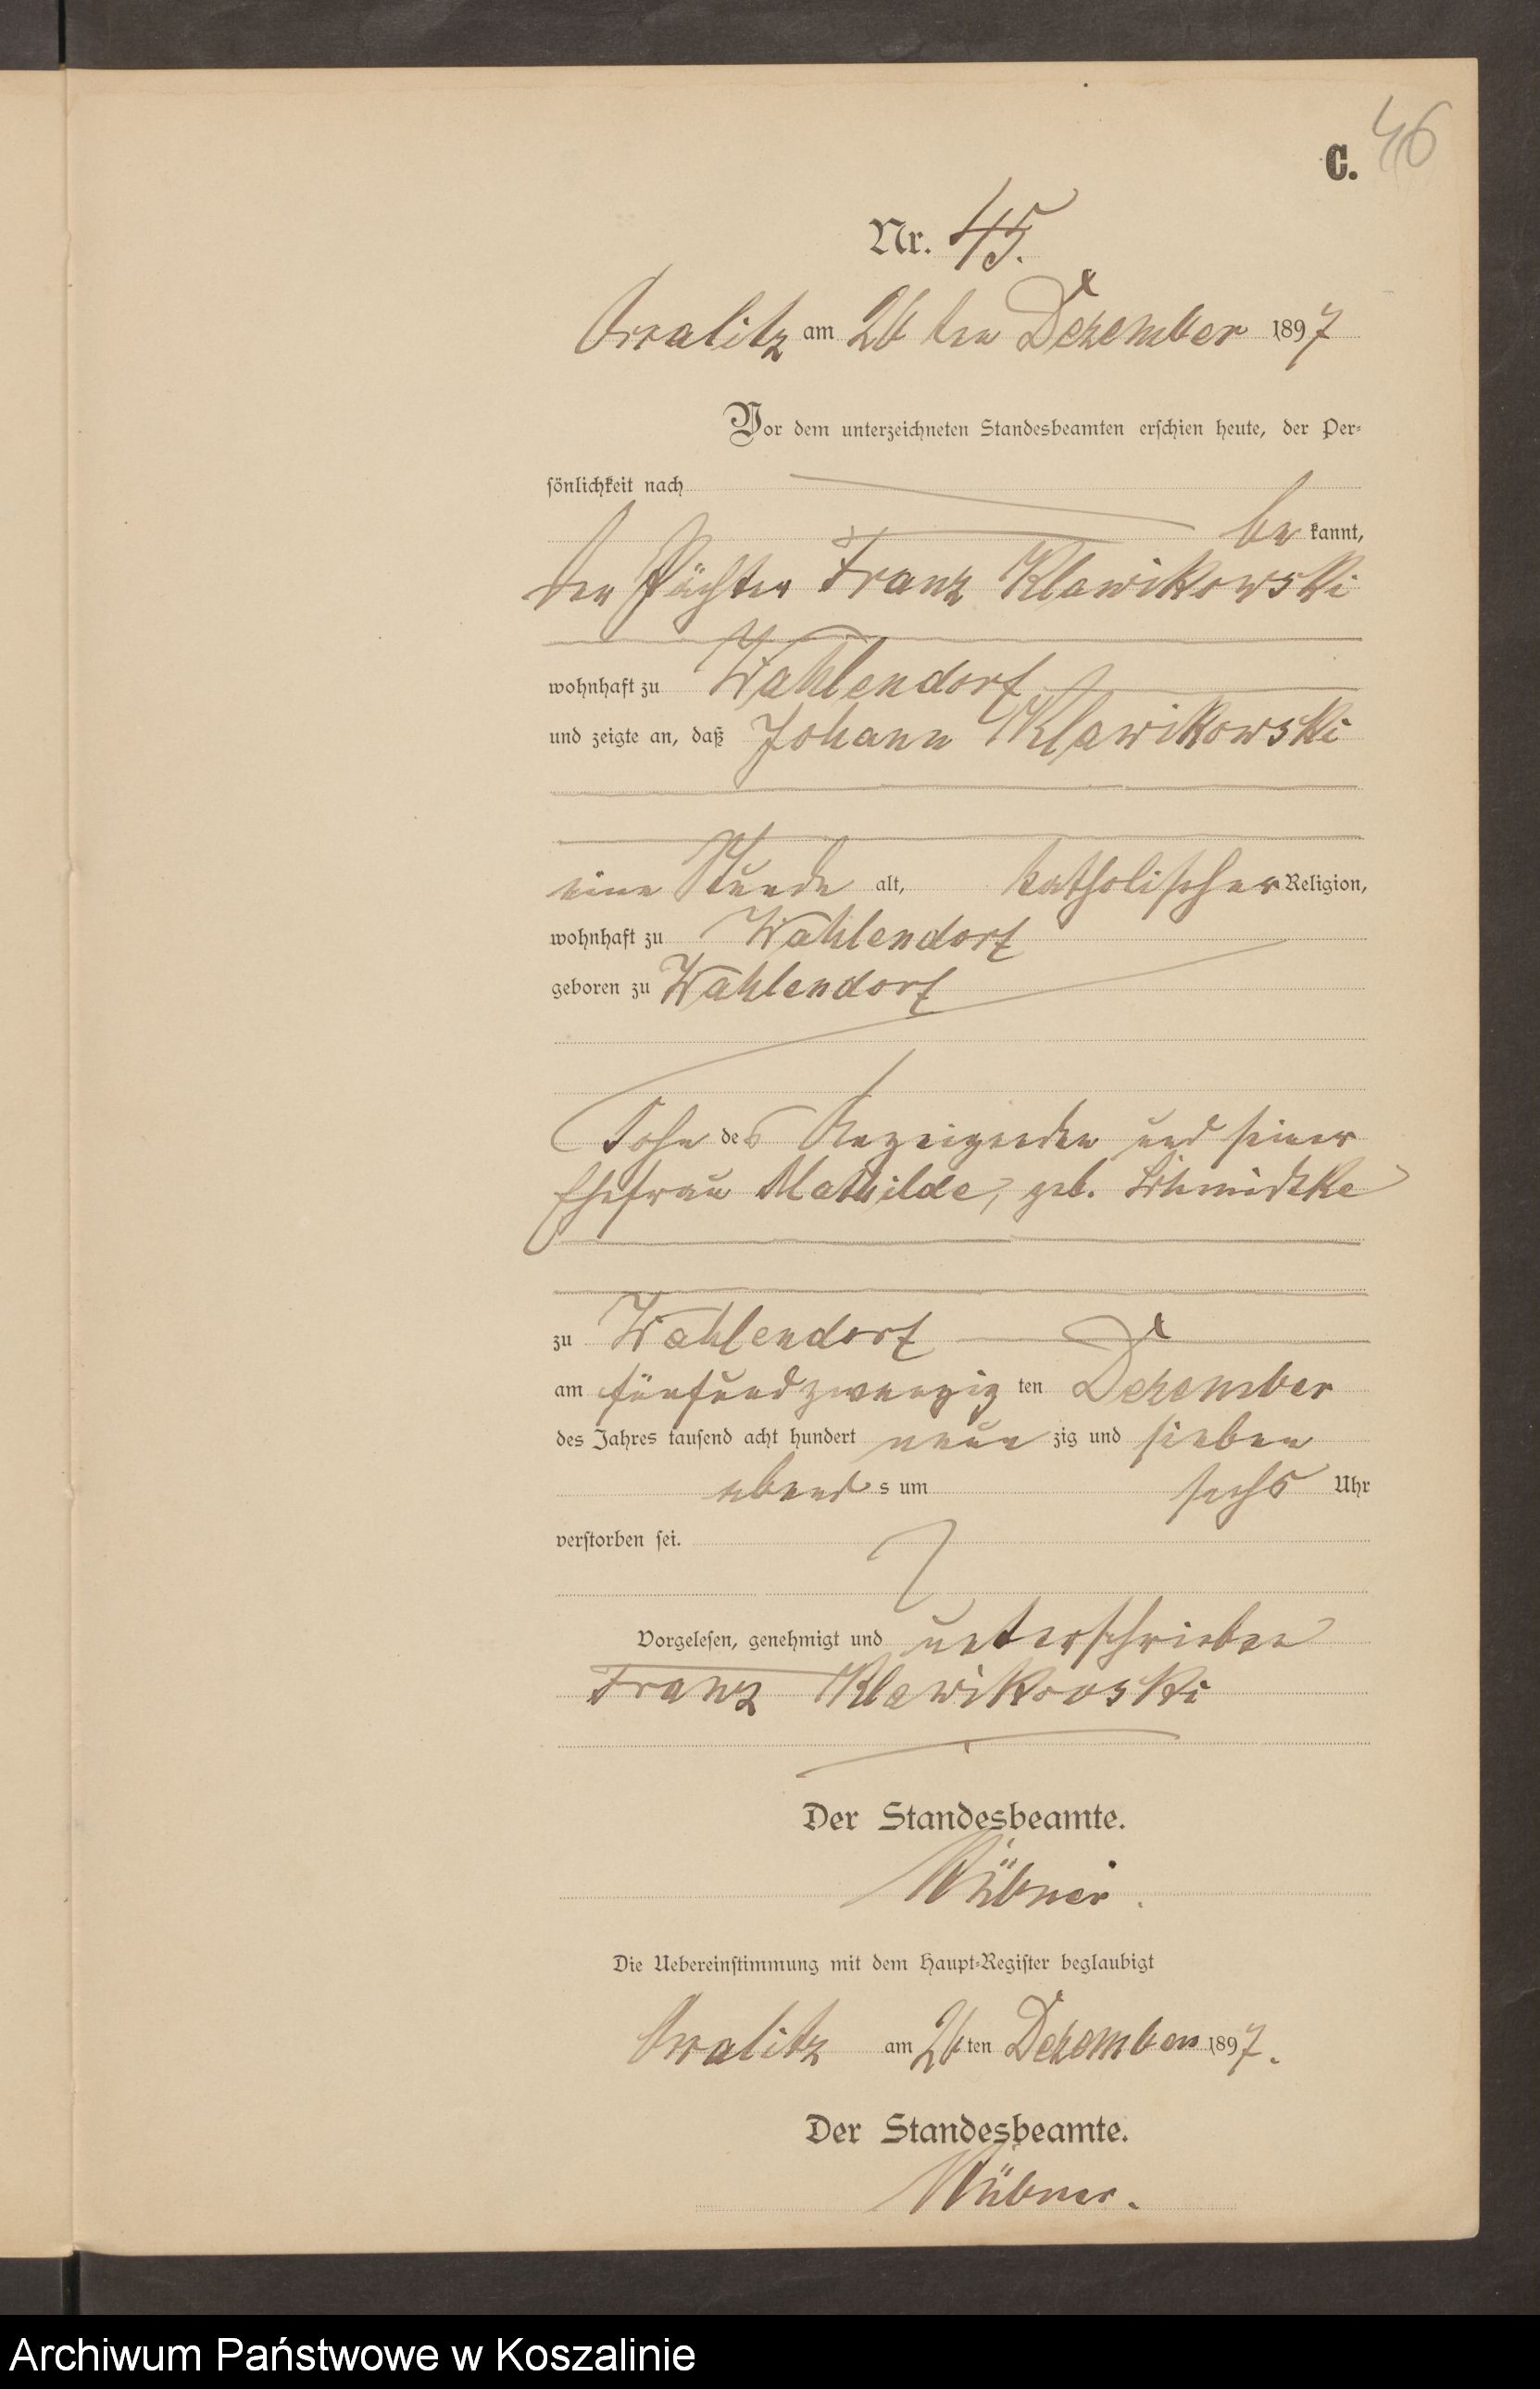 C. 46
Nr. 45.
am 26 ten Dezember 1897
Vor dem unterzeichneten Standesbeamten erschien heute, der Per-
sönlichkeit nach
be kannt,
der Pächter Franz Klawikowski
wohnhaft zu Wahlendorf
und zeigte an, daß Johann Klawikowski
eine Stunde alt, katholischer Religion,
wohnhaft zu Wahlendorf
geboren zu Wahlendorf
Sohn des Anzeigenden und seiner
Ehefrau Mathilde, geb. Schmidtke
zu Wahlendorf
am fünfundzwanzig ten Dezember
des Jahres tausend acht hundert neun zig und sieben
abend s um sechs Uhr
verstorben sei.
Vorgelesen, genehmigt und unterschrieben
Franz Klawikowski
Der Standesbeamte.
Die Uebereinstimmung mit dem Haupt-Register beglaubigt
am 26 ten Dezember 1897.
Der Standesbeamte.
Archiwum Państwowe w Koszalinie